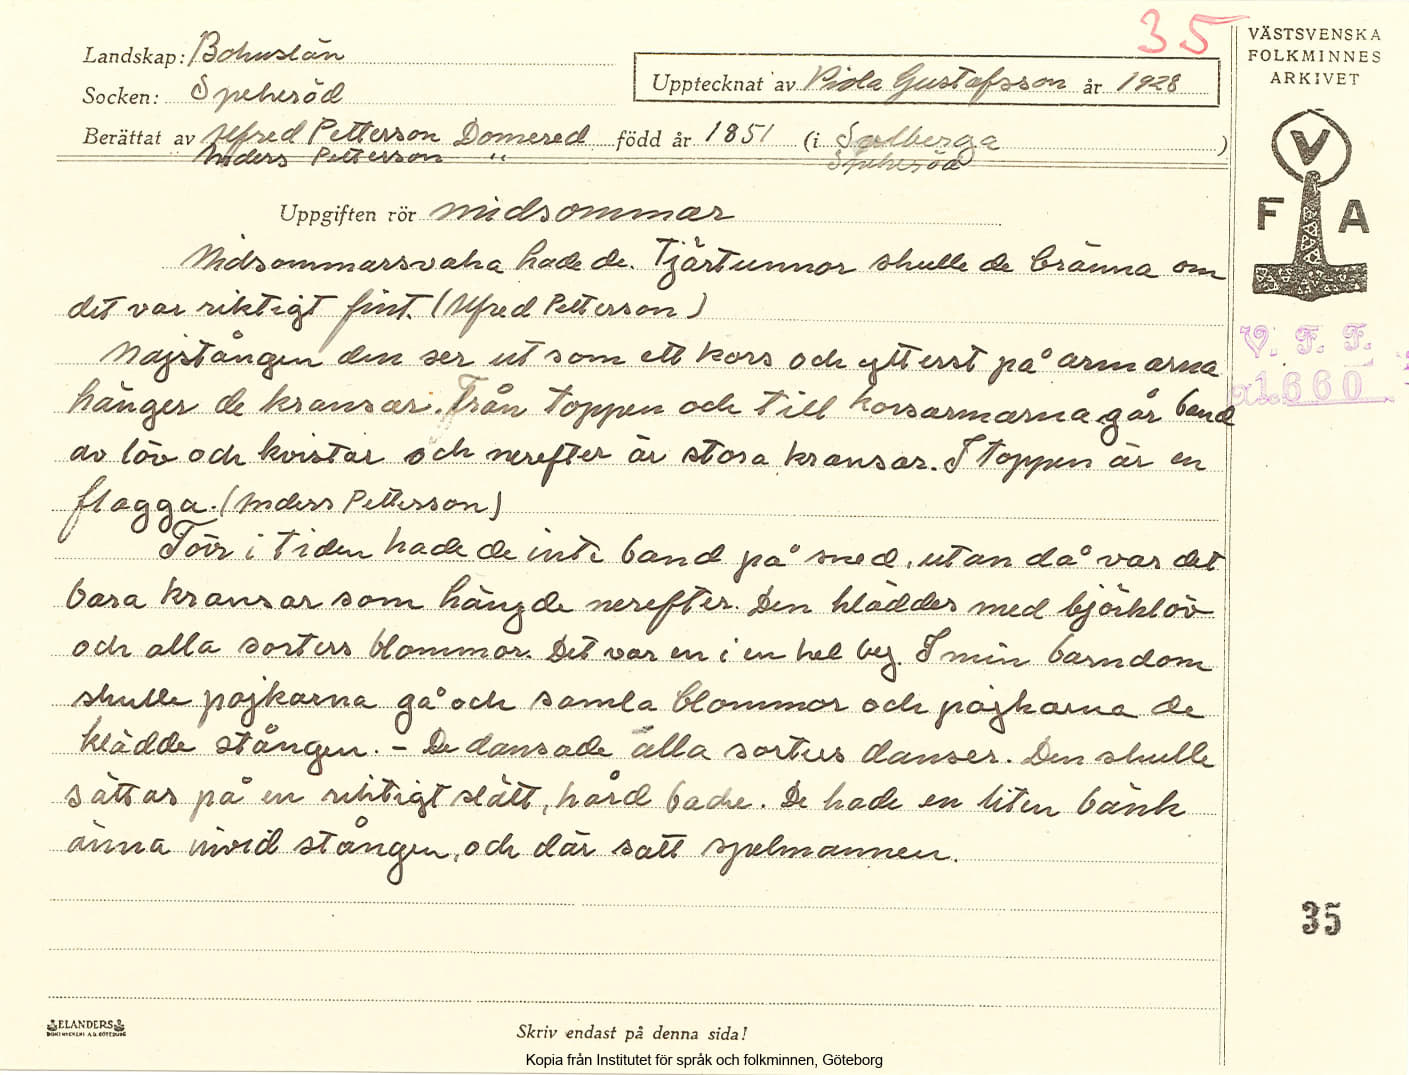 35
VÄSTSVENSKA
FOLKMINNES
ARKIVET
Landskap: Bohuslän
Socken: Spekeröd
Upptecknat av Viola Gustafsson år 1928
Berättat av Alfred Petterson Domered född år 1851 (i Solberga )
Anders Petterson " Spekeröd
V
F A
Uppgiften rör midsommar
Midsommarsvaka hade de. Tjärtunnor skulle de bränna om
det var riktigt fint. (Alfred Petterson)
Majstången den ser ut som ett kors och ytterst på armarna
hänger de kransar. Från toppen och till korsarmarna går band
av löv och kvistar och nerefter är stora kransar. I toppen är en
flagga. (Anders Petterson)
Förr i tiden hade de inte band på sned, utan då var det
bara kransar som hängde nerefter. Den kläddes med björklöv
och alla sorters blommor. Det var en i en hel by. I min barndom
skulle pojkarna gå och samla blommor och pojkarna de
klädde stången. – De dansade alla sorters danser. Den skulle
sättas på en riktigt slätt, hård backe. De hade en liten bänk
änna invid stången, och där satt spelmannen.
V. F. F.
1660
35
ELANDERS
Skriv endast på denna sida!
Kopia från Institutet för språk och folkminnen, Göteborg